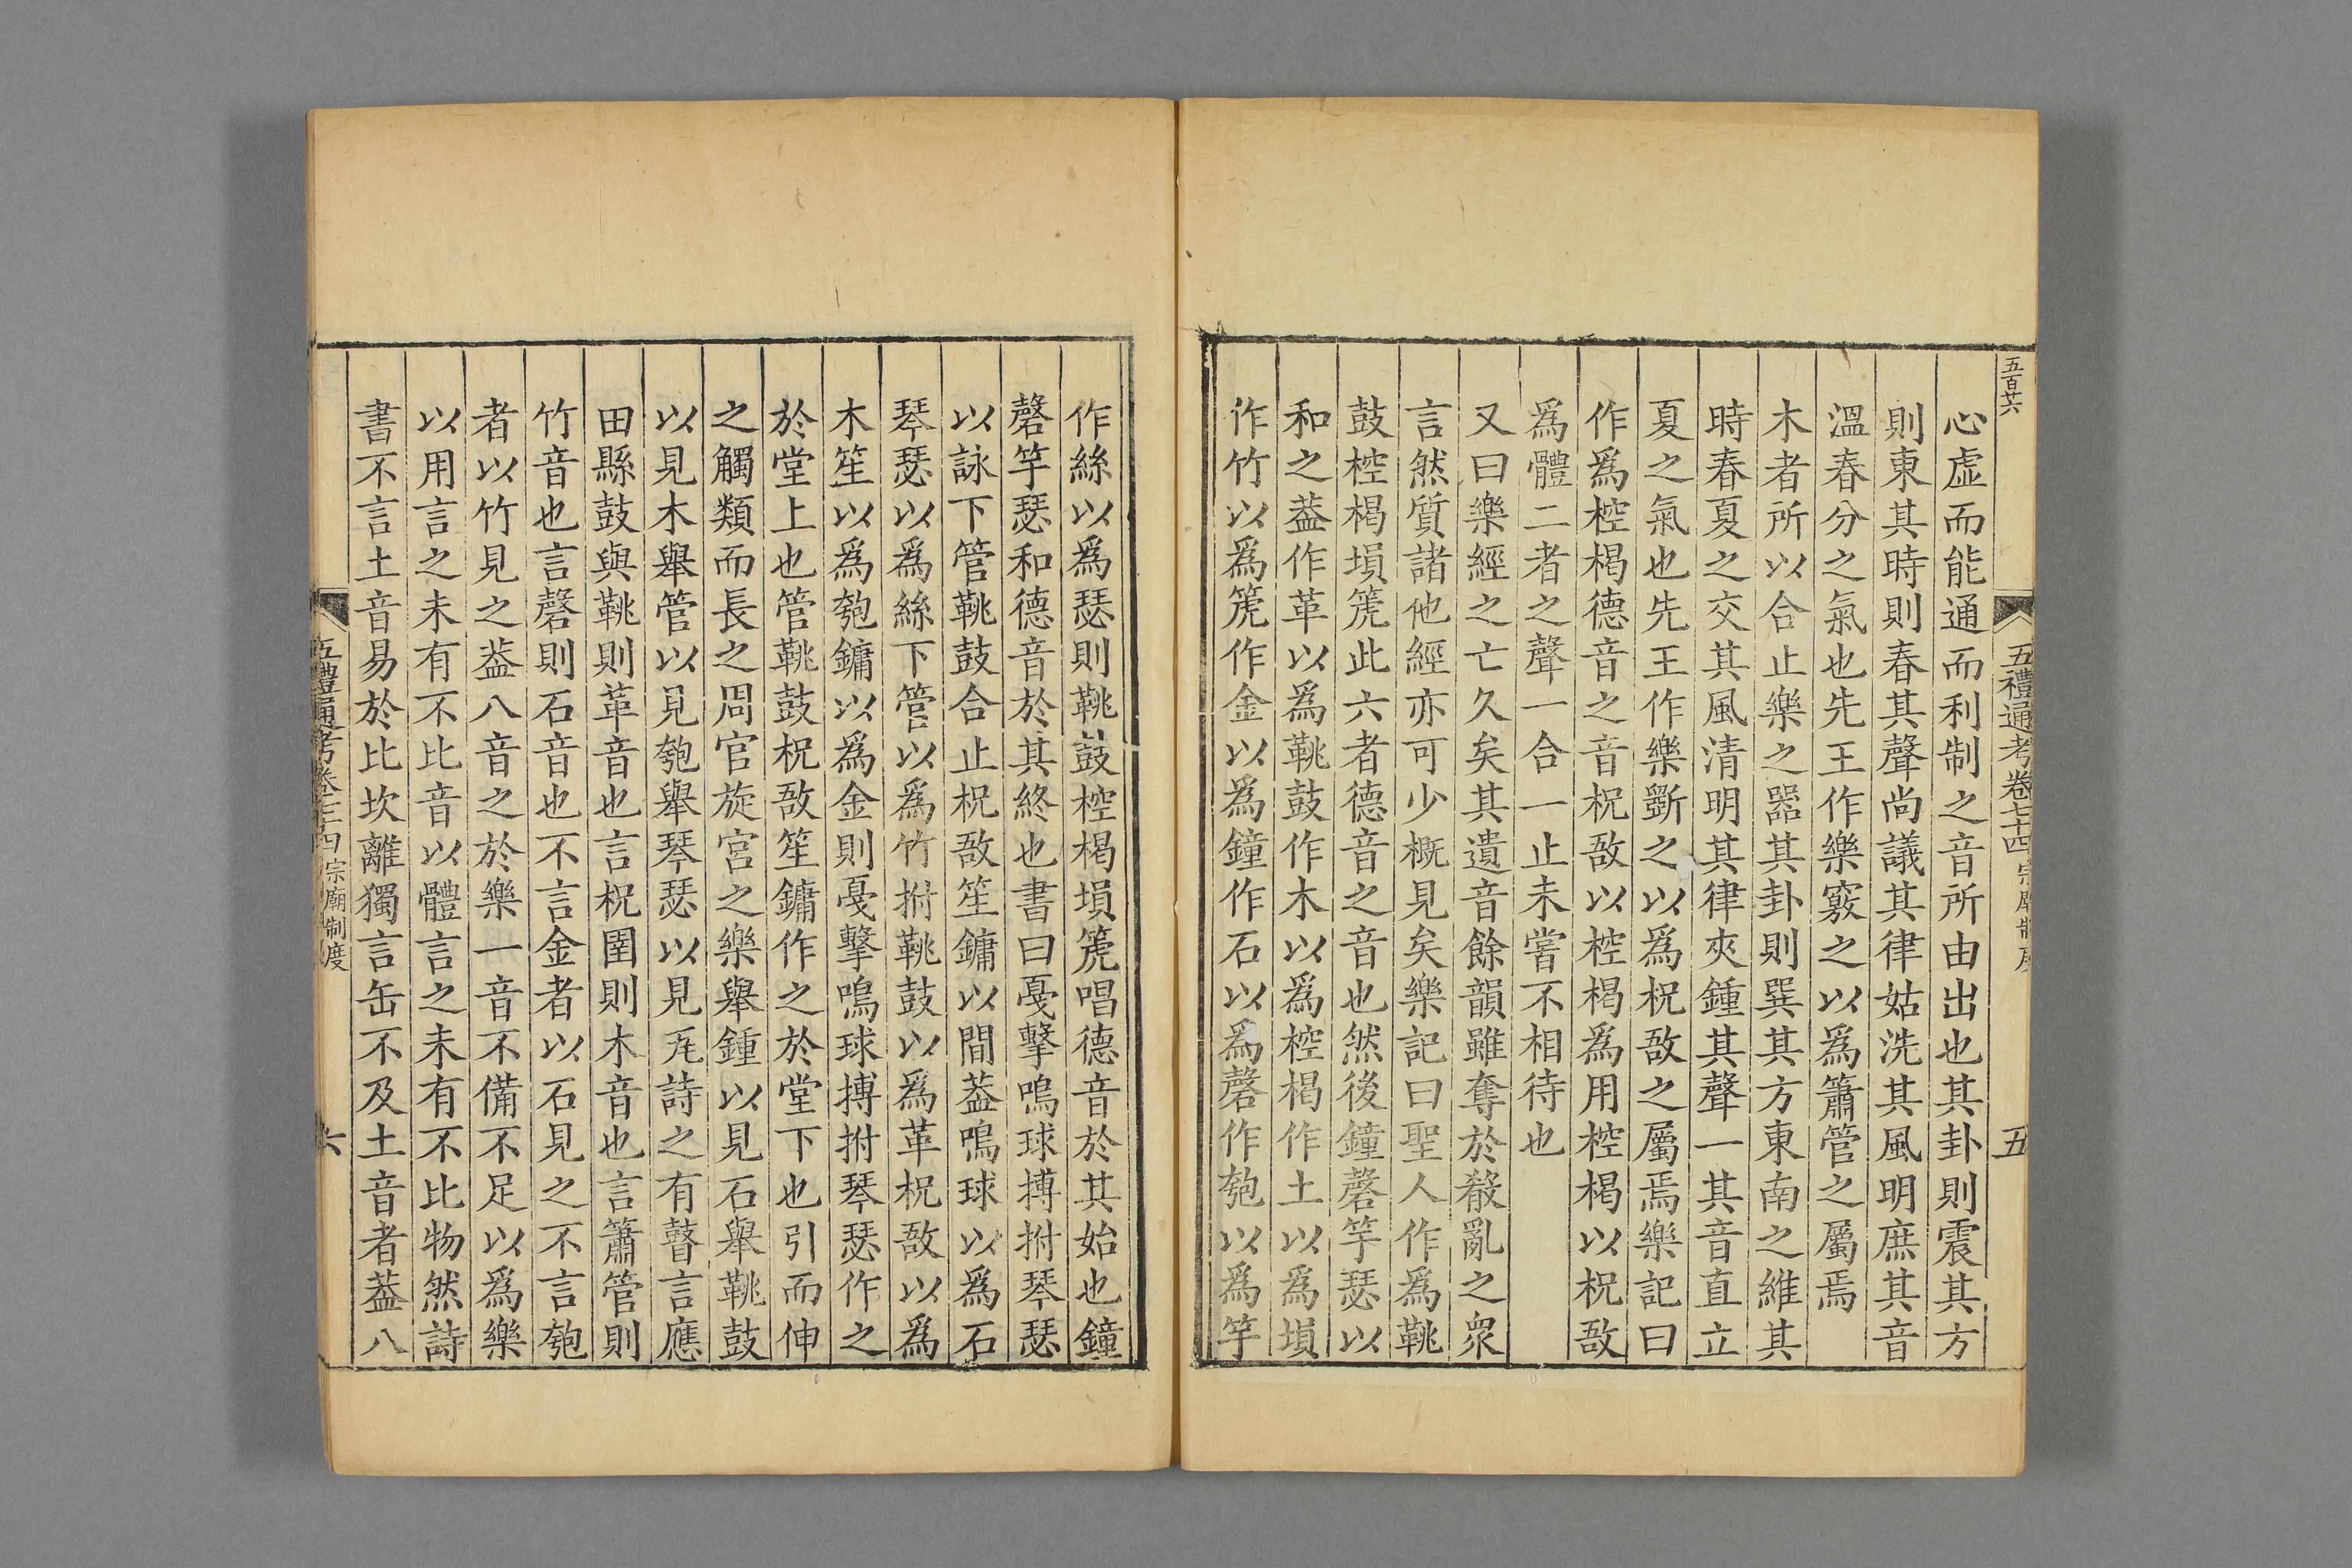 五百廿六
五禮通考卷七十四 宗廟制度
五
心虛而能通而利制之音所由出也其卦則震其方
則東其時則春其聲尚議其律姑洗其風明庶其音
溫春分之氣也先王作樂竅之以爲簫管之屬焉
木者所以合止樂之器其卦則巽其方東南之維其
時春夏之交其風清明其律夾鍾其聲一其音直立
夏之氣也先王作樂斲之以爲柷敔之屬焉樂記曰
作爲椌楬德音之音柷敔以椌楬爲用椌楬以柷敔
爲體二者之聲一合一止未嘗不相待也
又曰樂經之亡久矣其遺音餘韻雖奪於殽亂之衆
言然質諸他經亦可少概見矣樂記曰聖人作爲鞉
鼓椌楬塤箎此六者德音之音也然後鐘磬竽瑟以
和之葢作革以爲鞉鼓作木以爲椌楬作土以爲塤
作竹以爲箎作金以爲鐘作石以爲磬作匏以爲竽
作絲以爲瑟則鞉鼓椌楬塤箎唱德音於其始也鐘
磬竽瑟和德音於其終也書曰戞擊鳴球搏拊琴瑟
以詠下管鞉鼓合止柷敔笙鏞以間葢鳴球以爲石
琴瑟以爲絲下管以爲竹拊鞉鼓以爲革柷敔以爲
木笙以爲匏鏞以爲金則戞擊鳴球搏拊琴瑟作之
於堂上也管鞉鼓柷敔笙鏞作之於堂下也引而伸
之觸類而長之周官旋宮之樂舉鍾以見石舉鞉鼓
以見木舉管以見匏舉琴瑟以見𡉏詩之有瞽言應
田縣鼓與鞉則革音也言柷圉則木音也言簫管則
竹音也言磬則石音也不言金者以石見之不言匏
者以竹見之葢八音之於樂一音不備不足以爲樂
以用言之未有不比音以體言之未有不比物然詩
書不言土音易於比坎離獨言缶不及土音者葢八
五禮通考卷七十四 宗廟制度
六